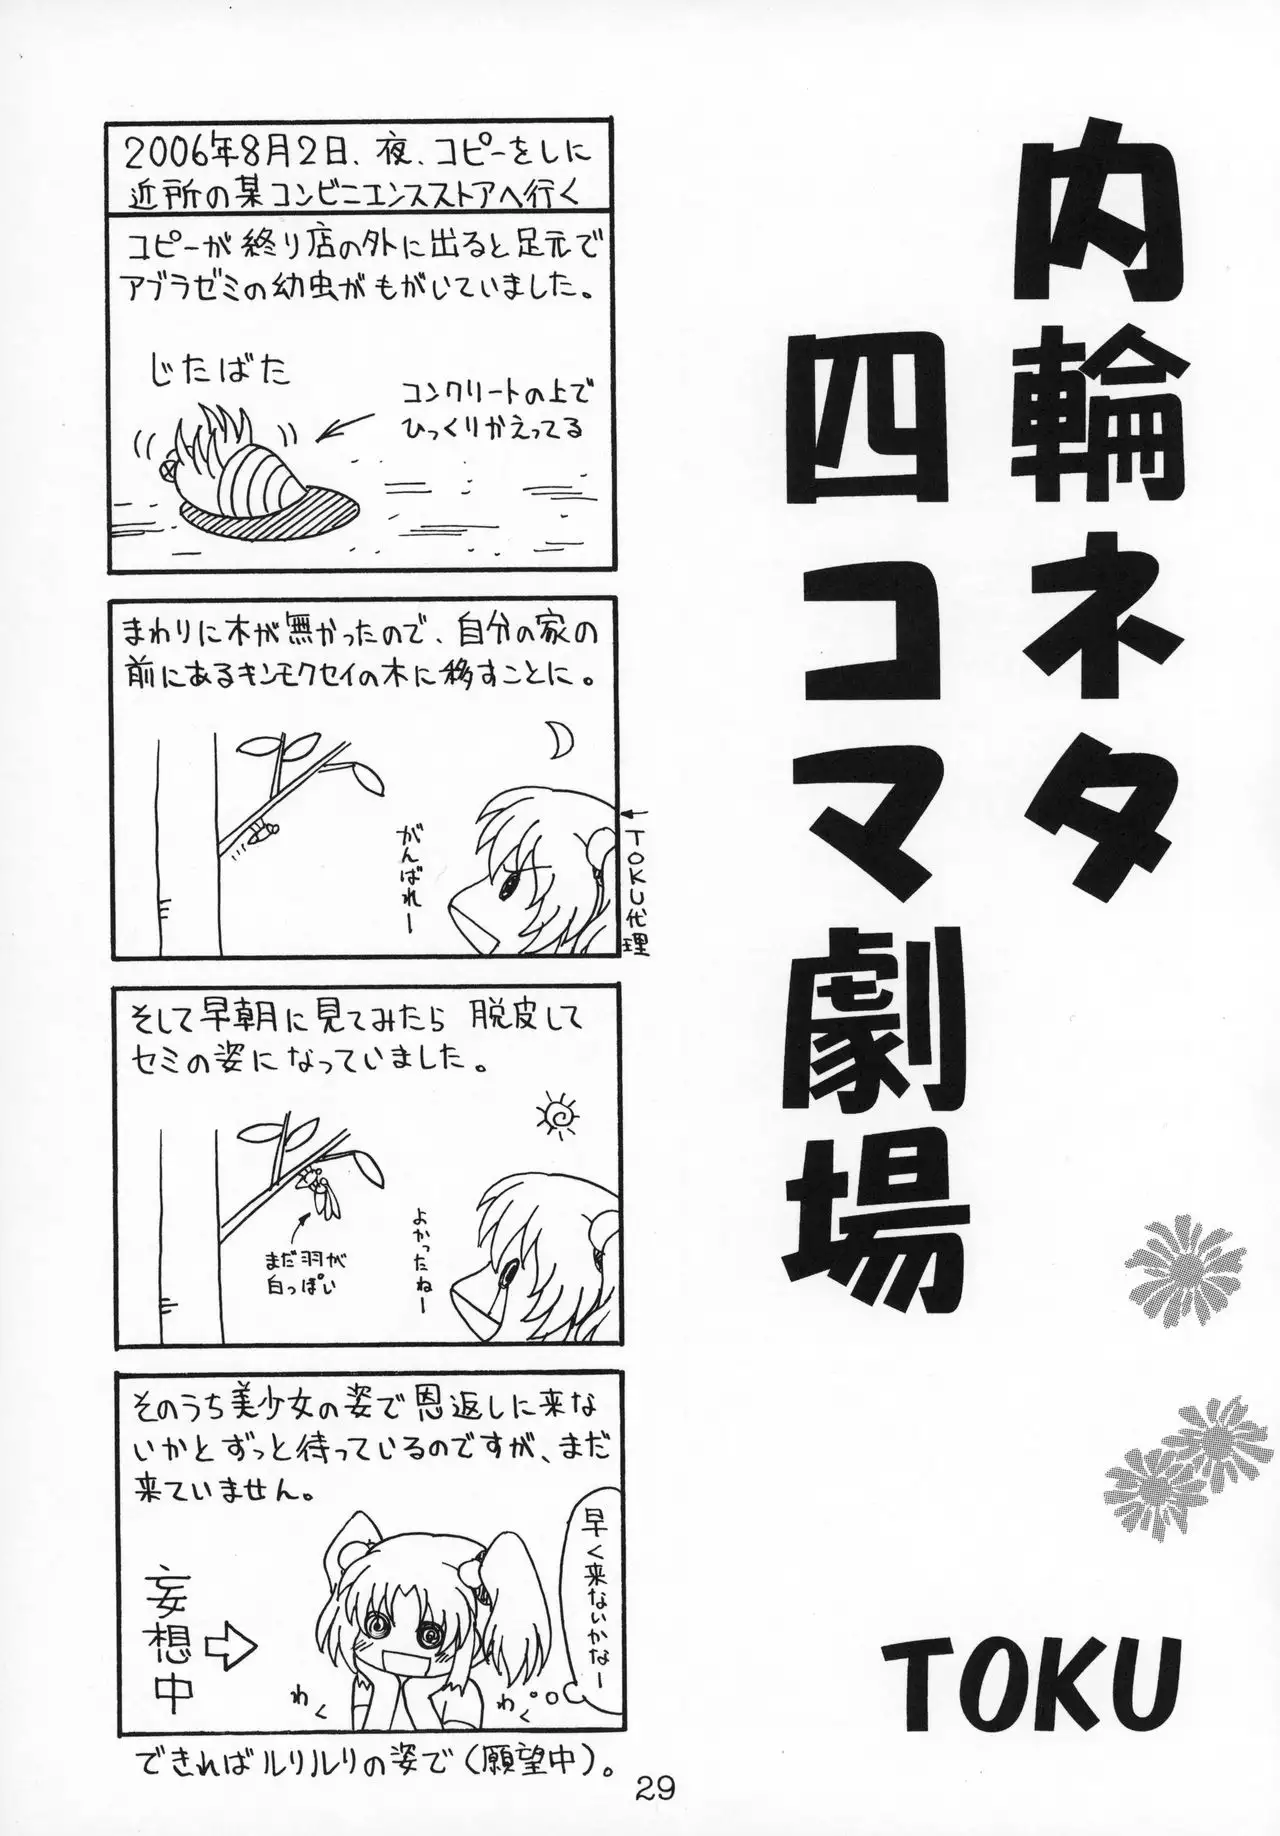 内輪ネタ
四コマ劇場
TOKU
2006年8月2日、夜、コピーをしに
近所の某コンビニエンスストアへ行く
コピーが終り店の外に出ると足元で
アブラゼミの幼虫がもがいていました。
じたばた
コンクリートの上で
ひっくりかえってる
まわりに木が無かったので、自分の家の
前にあるキンモクセイの木に移すことに。
がんばれー
TOKU代理
そして早朝に見てみたら 脱皮して
セミの姿になっていました。
よかったねー
まだ羽が
白っぽい
そのうち美少女の姿で恩返しに来な
いかとずっと待っているのですが、まだ
来ていません。
早く来ないかなー
妄想中
わく
わく
できればルリルリの姿で(願望中)。
29